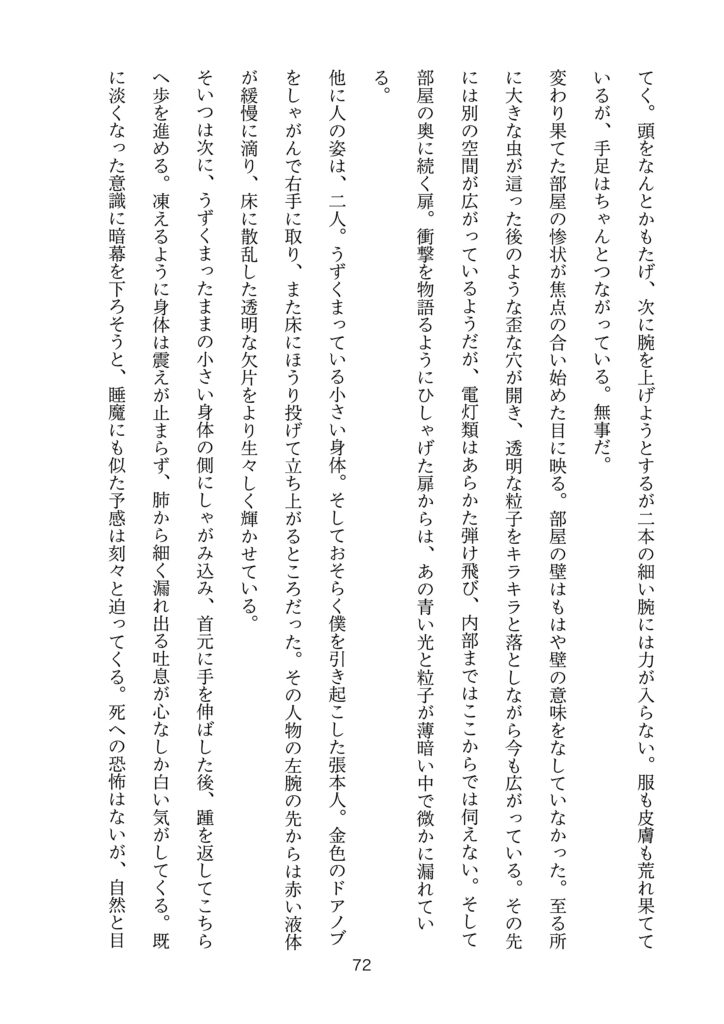 てく。頭をなんとかもたげ、次に腕を上げようとするが二本の細い腕には力が入らない。服も皮膚も荒れ果てて
いるが、手足はちゃんとつながっている。無事だ。
変わり果てた部屋の惨状が焦点の合い始めた目に映る。部屋の壁はもはや壁の意味をなしていなかった。至る所
に大きな虫が這った後のような歪な穴が開き、透明な粒子をキラキラと落としながら今も広がっている。その先
には別の空間が広がっているようだが、電灯類はあらかた弾け飛び、内部まではここからでは伺えない。そして
部屋の奥に続く扉。衝撃を物語るようにひしゃげた扉からは、あの青い光と粒子が薄暗い中で微かに漏れてい
る。
他に人の姿は、二人。うずくまっている小さい身体。そしておそらく僕を引き起こした張本人。金色のドアノブ
をしゃがんで右手に取り、また床にほうり投げて立ち上がるところだった。その人物の左腕の先からは赤い液体
が緩慢に滴り、床に散乱した透明な欠片をより生々しく輝かせている。
そいつは次に、うずくまったままの小さい身体の側にしゃがみ込み、首元に手を伸ばした後、踵を返してこちら
へ歩を進める。凍えるように身体は震えが止まらず、肺から細く漏れ出る吐息が心なしか白い気がしてくる。既
に淡くなった意識に暗幕を下ろそうと、睡魔にも似た予感は刻々と迫ってくる。死への恐怖はないが、自然と目
72